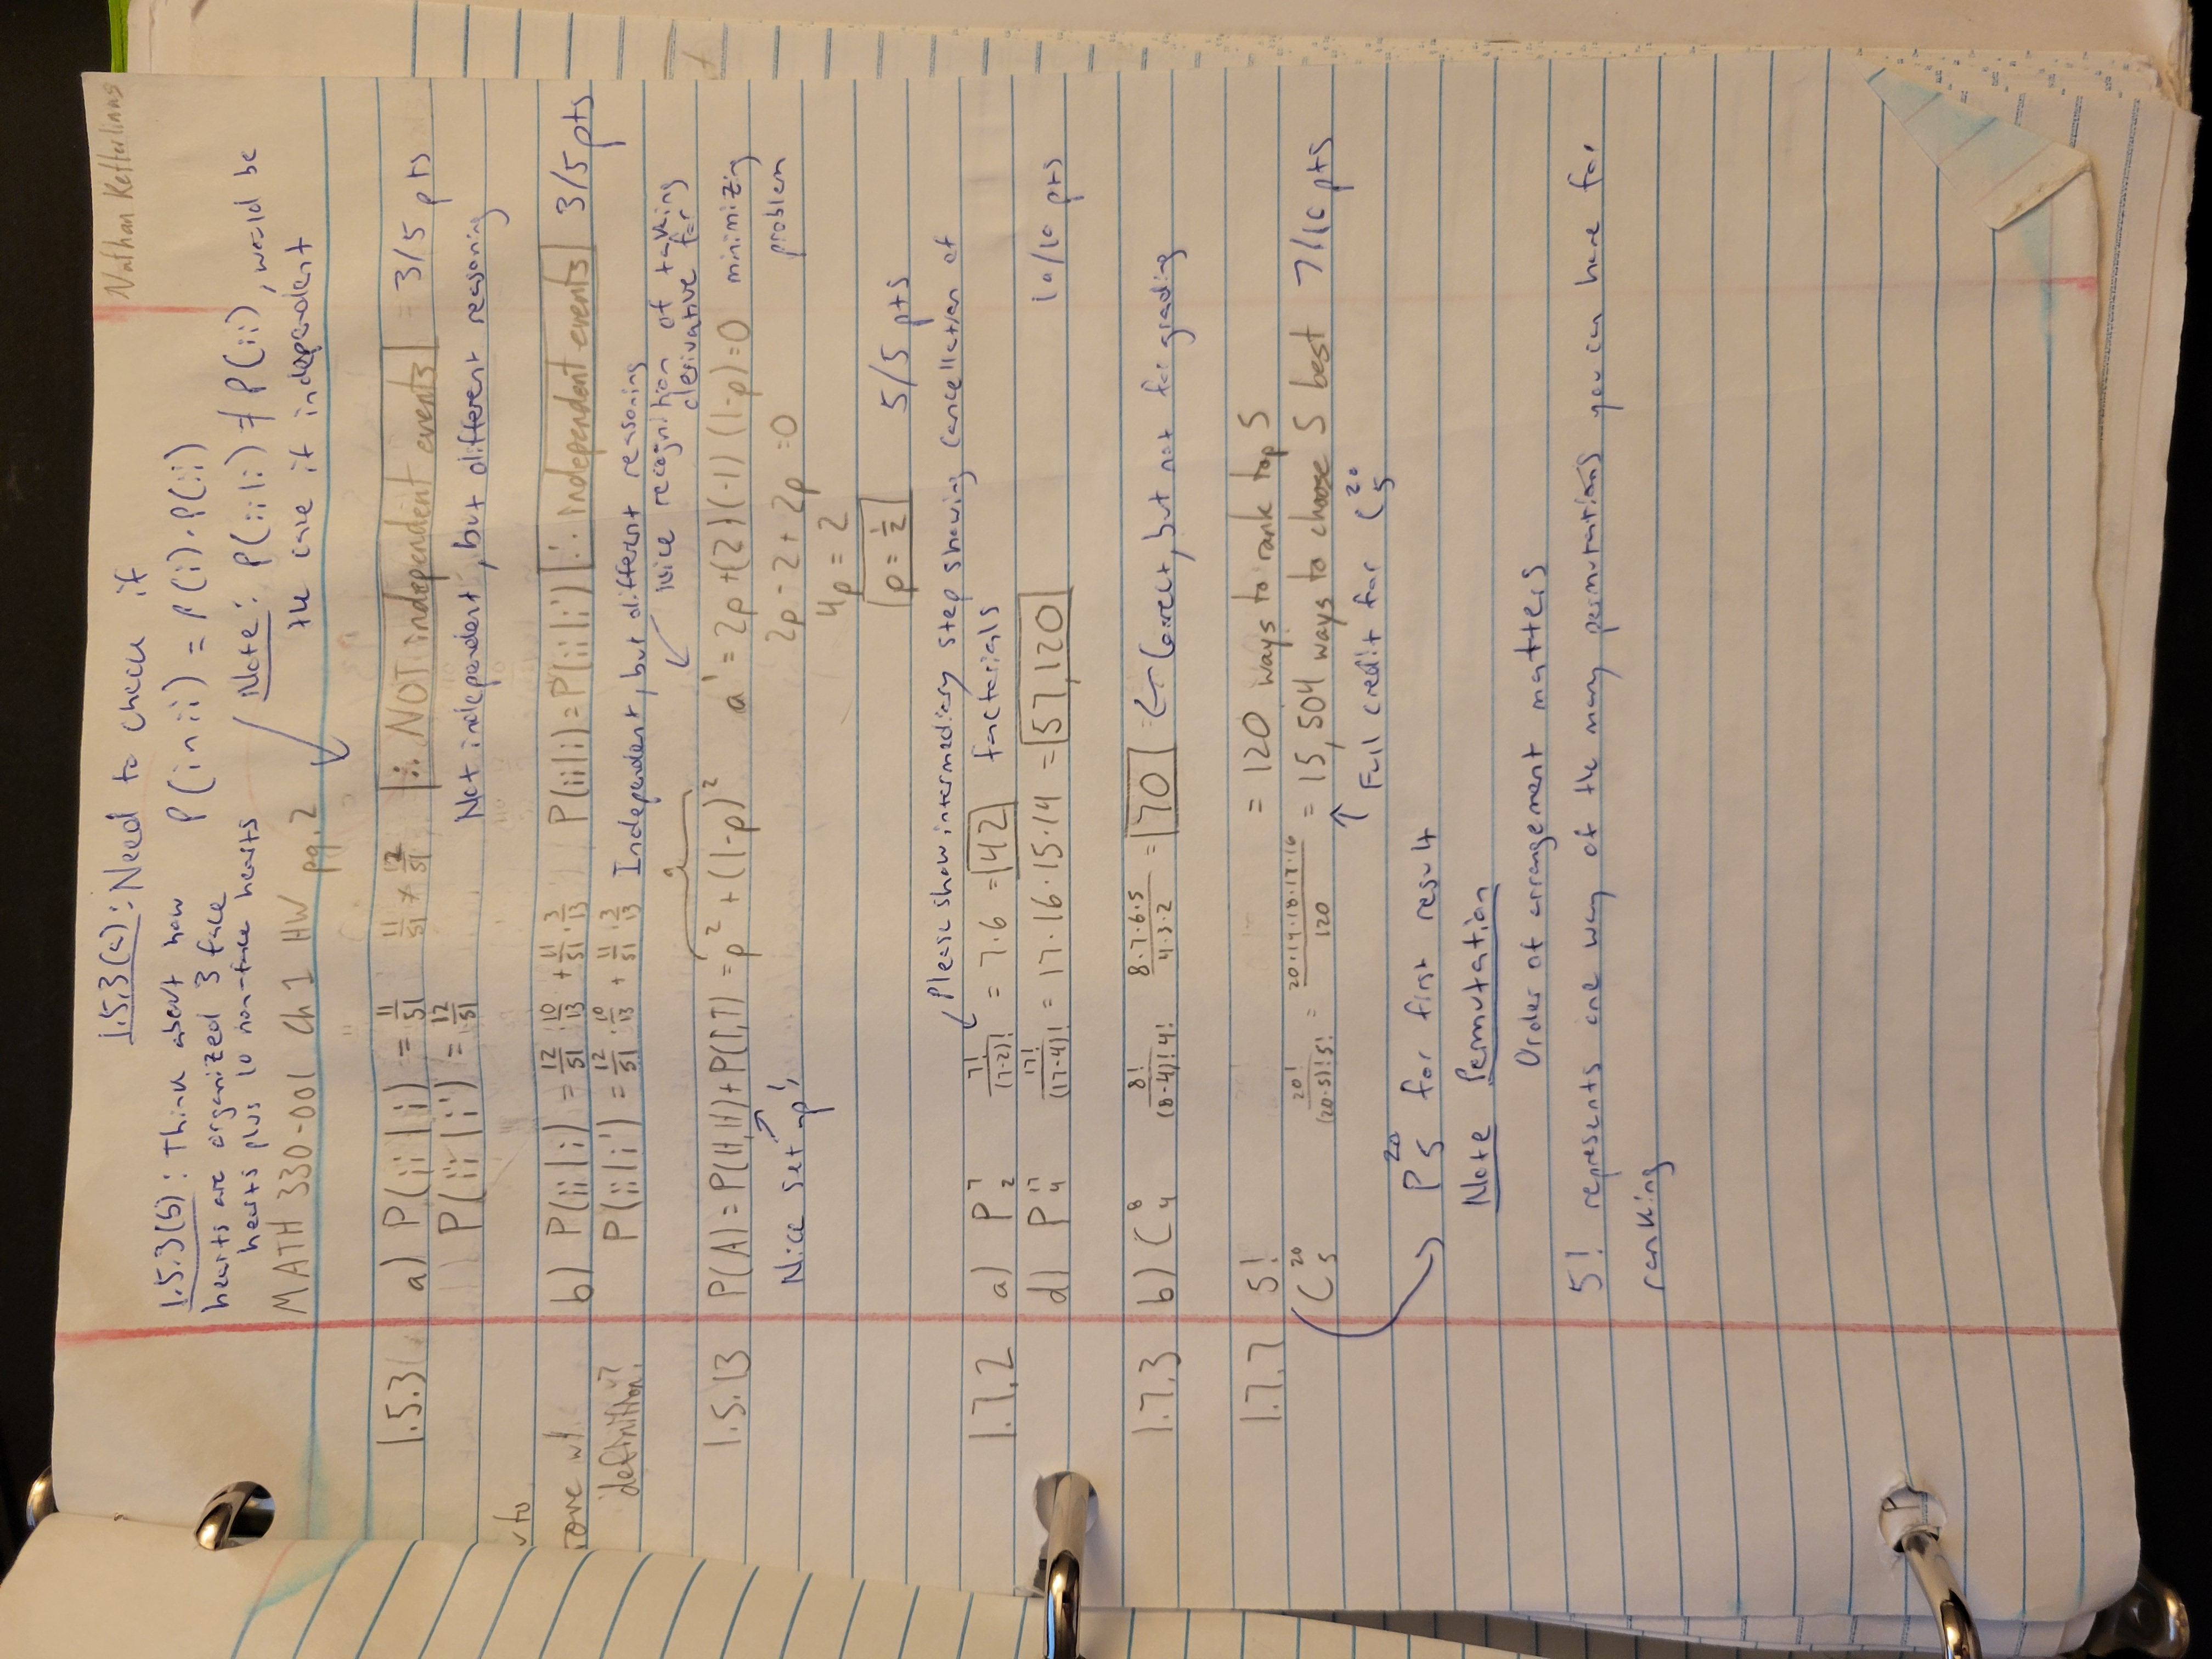 Nathan Ketterlinus
1.5.3(a): Need to check if
P(i∩ii) = P(i)·P(ii)
1.5.3(b): Think about how
hearts are organized 3 face
hearts plus 10 non-face hearts
Note: P(ii|i) ≠ P(ii), would be
the case if independent
MATH 330-001 Ch 1 HW pg. 2
1.5.3 a) P(ii|i) = 11/51 11/51 ≠ 12/51 ∴ NOT independent events 3/5 pts
P(ii|i') = 12/51
Not independent, but different reasoning
b) P(ii|i) = 12/51 · 10/13 + 11/51 · 3/13 P(ii|i) = P(ii|i') ∴ independent events 3/5 pts
P(ii|i') = 12/51 · 10/13 + 11/51 · 3/13
Independent, but different reasoning
definition?
Nice recognition of taking
derivative for
minimizing
problem
a
1.5.13 P(A) = P(H,H) + P(T,T) = p² + (1-p)² a' = 2p + (2)(-1)(1-p) = 0
Nice set up!
2p - 2 + 2p = 0
4p = 2
p = 1/2 5/5 pts
Please show intermediary step showing cancellation of
factorials
1.7.2 a) P⁷₂ 7!/(7-2)! = 7·6 = 42
d) P¹⁷₄ 17!/(17-4)! = 17·16·15·14 = 57,120 10/10 pts
1.7.3 b) C⁸₄ 8!/(8-4)!4! 8·7·6·5/4·3·2 = 70 ← Correct, but not for grading
1.7.7 5! = 120 ways to rank top 5
C²⁰₅ 20!/(20-5)!5! = 20·19·18·17·16/120 = 15,504 ways to choose 5 best 7/10 pts
Full credit for C²⁰₅
P²⁰₅ for first result
Note Permutation
Order of arrangement matters
5! represents one way of the many permutations you can have for
ranking